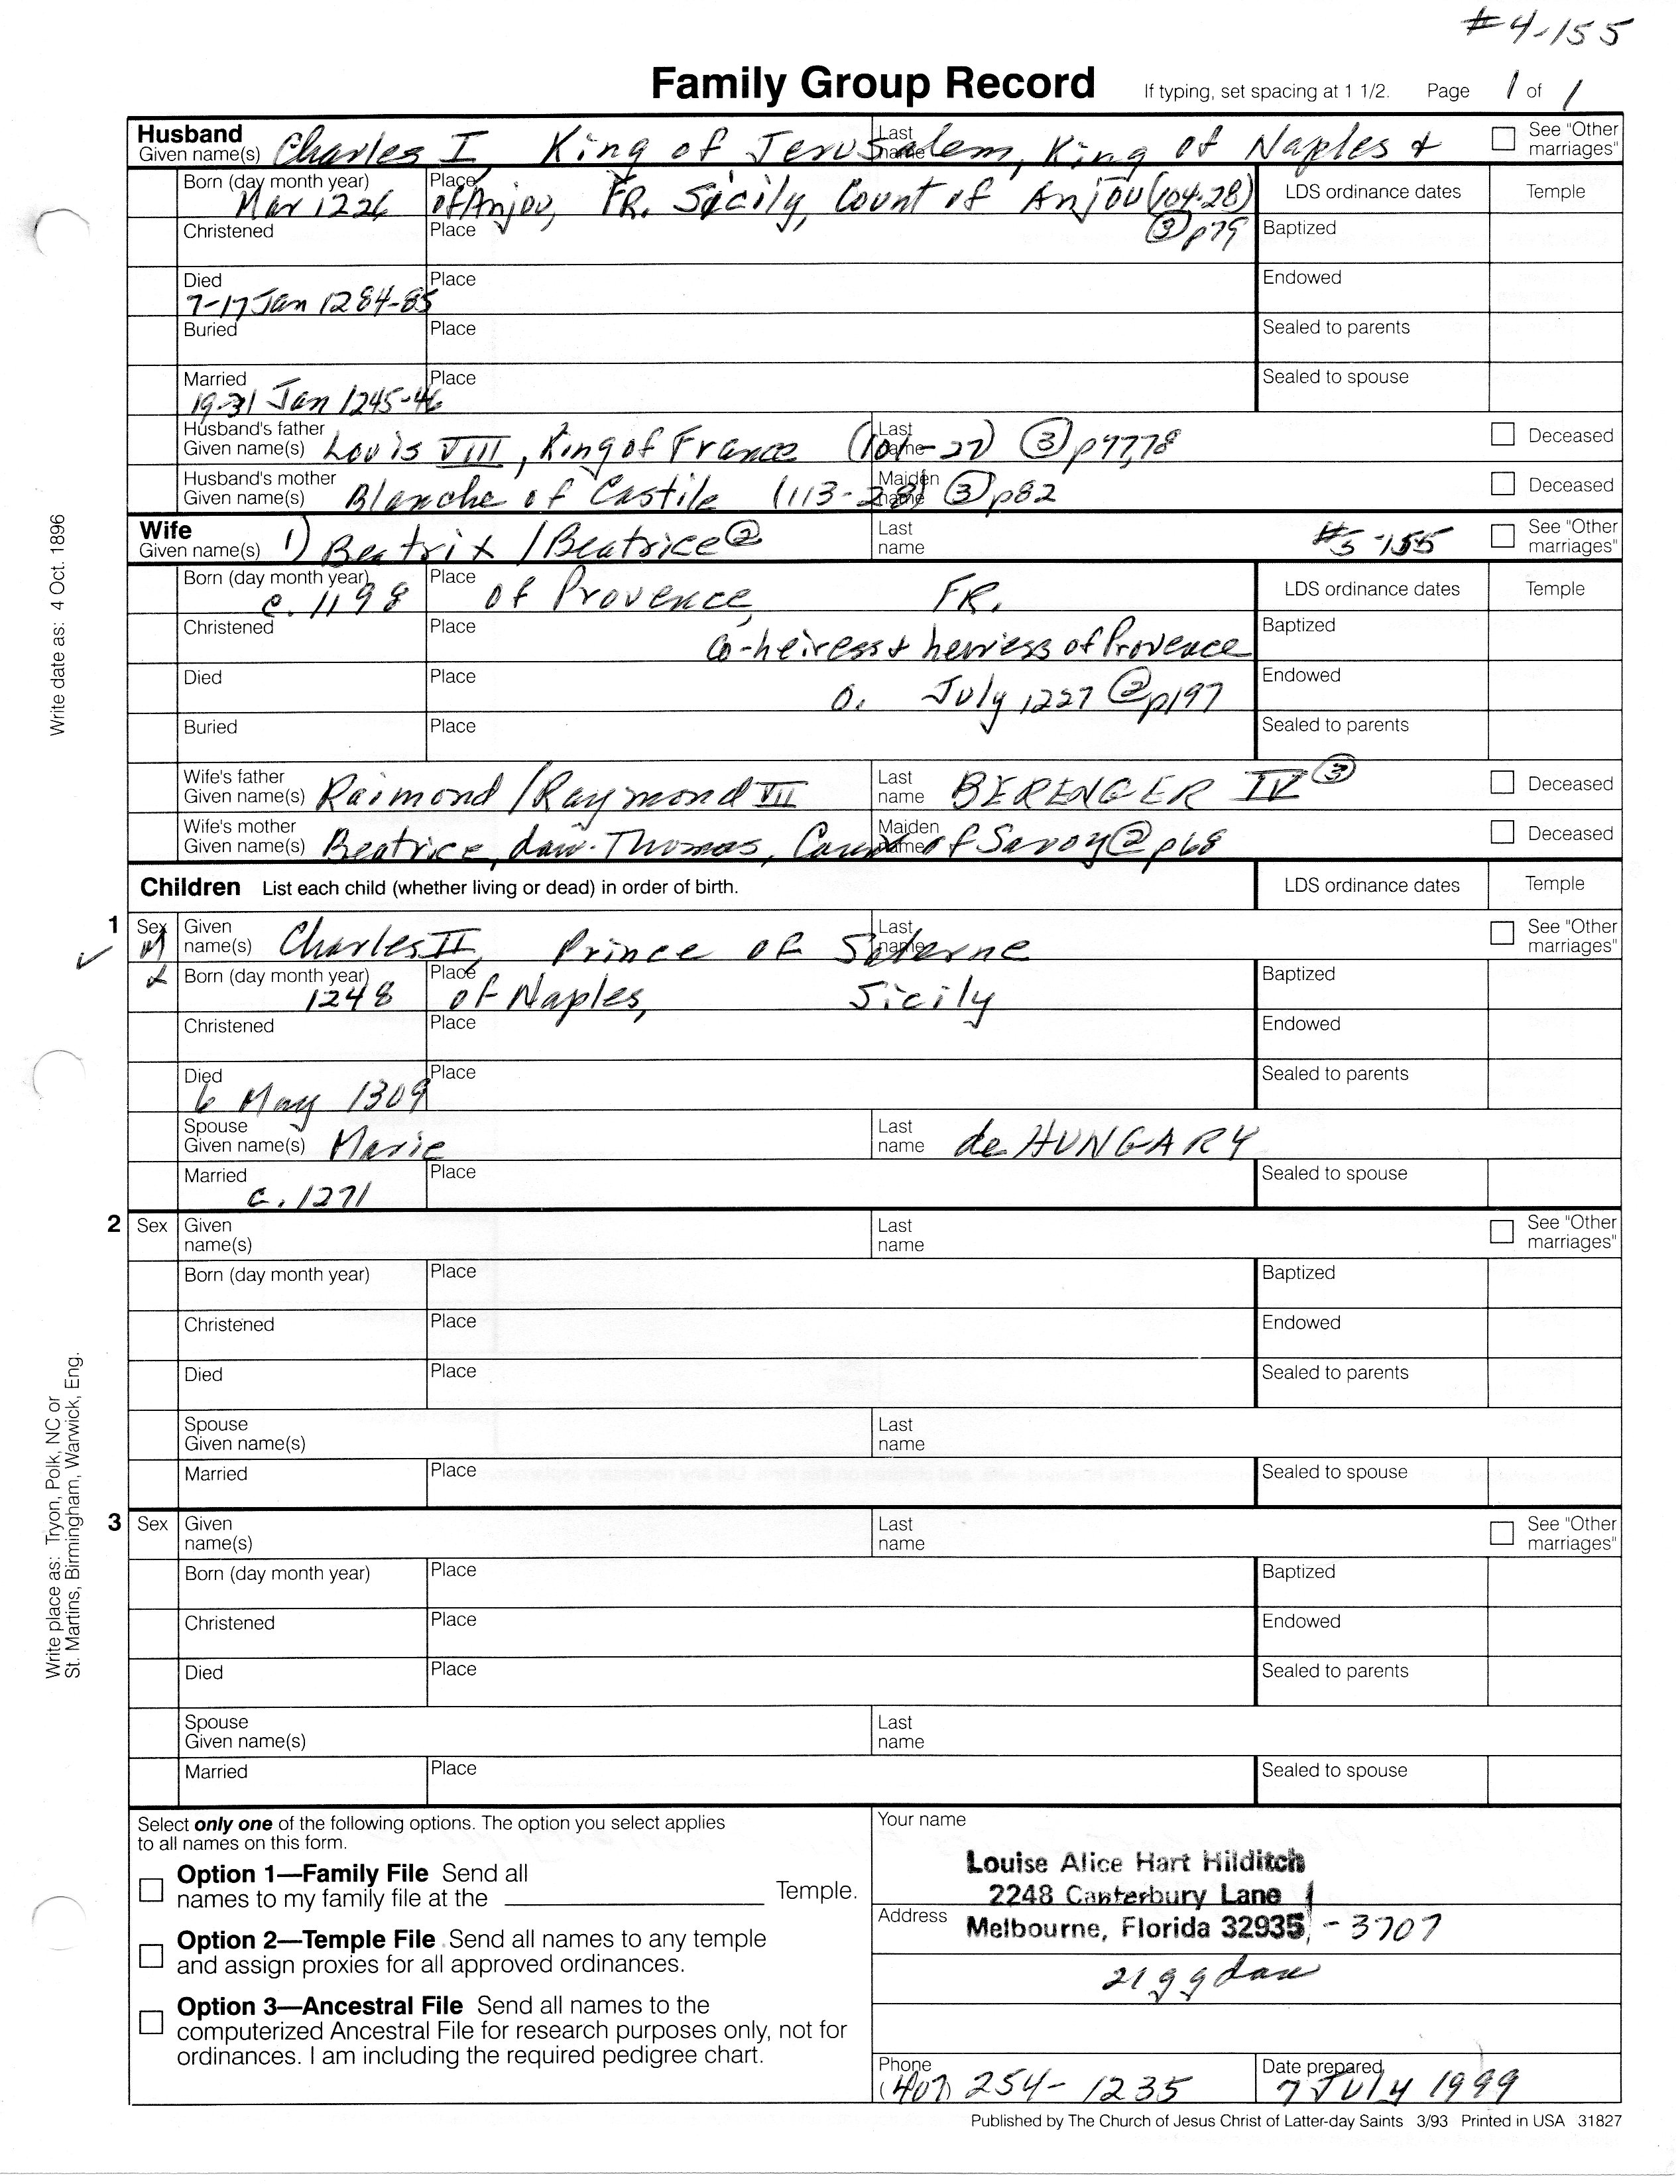 #4-155
Family Group Record If typing, set spacing at 1 1/2. Page 1 of 1
Husband Given name(s) Charles I, King of Jerusalem, King of Naples & Last name See "Other marriages"
Born (day month year) Mar 1226 Place of Anjou, FR. Sicily, Count of Anjou (104-28) LDS ordinance dates Temple
Christened Place ③ p79 Baptized
Died 7-17 Jan 1284-85 Place Endowed
Buried Place Sealed to parents
Married 19-31 Jan 1245-46 Place Sealed to spouse
Husband's father Given name(s) Louis VIII, King of France Last name (101-27) ③ p77,78 Deceased
Husband's mother Given name(s) Blanche of Castile Maiden name (113-28) ③ p82 Deceased
Wife Given name(s) 1) Beatrix / Beatrice ② Last name #5-155 See "Other marriages"
Born (day month year) c. 1198 Place of Provence, FR. LDS ordinance dates Temple
Christened Place Co-heiress & heiress of Provence Baptized
Died Place July 1227 ② p197 Endowed
Buried Place Sealed to parents
Wife's father Given name(s) Raimond / Raymond VII Last name BERENGER IV ③ Deceased
Wife's mother Given name(s) Beatrice, dau. Thomas, Maiden name of Savoy ② p68 Deceased
Children List each child (whether living or dead) in order of birth. LDS ordinance dates Temple
1 Sex M Given name(s) Charles II, Prince of Last name See "Other marriages"
Born (day month year) 1248 Place of Naples, Sicily Baptized
Christened Place Endowed
Died 6 May 1309 Place Sealed to parents
Spouse Given name(s) Marie Last name de HUNGARY
Married c. 1271 Place Sealed to spouse
2 Sex Given name(s) Last name See "Other marriages"
Born (day month year) Place Baptized
Christened Place Endowed
Died Place Sealed to parents
Spouse Given name(s) Last name
Married Place Sealed to spouse
3 Sex Given name(s) Last name See "Other marriages"
Born (day month year) Place Baptized
Christened Place Endowed
Died Place Sealed to parents
Spouse Given name(s) Last name
Married Place Sealed to spouse
Select only one of the following options. The option you select applies
to all names on this form.
Option 1—Family File Send all
names to my family file at the Temple.
Option 2—Temple File Send all names to any temple
and assign proxies for all approved ordinances.
Option 3—Ancestral File Send all names to the
computerized Ancestral File for research purposes only, not for
ordinances. I am including the required pedigree chart.
Your name
Louise Alice Hart Hilditch
2248 Canterbury Lane
Address Melbourne, Florida 32935 -3707
21 gg dau
Phone (407) 254-1235 Date prepared 7 July 1999
Published by The Church of Jesus Christ of Latter-day Saints 3/93 Printed in USA 31827
Write date as: 4 Oct. 1896
Write place as: Tryon, Polk, NC or
St. Martins, Birmingham, Warwick, Eng.